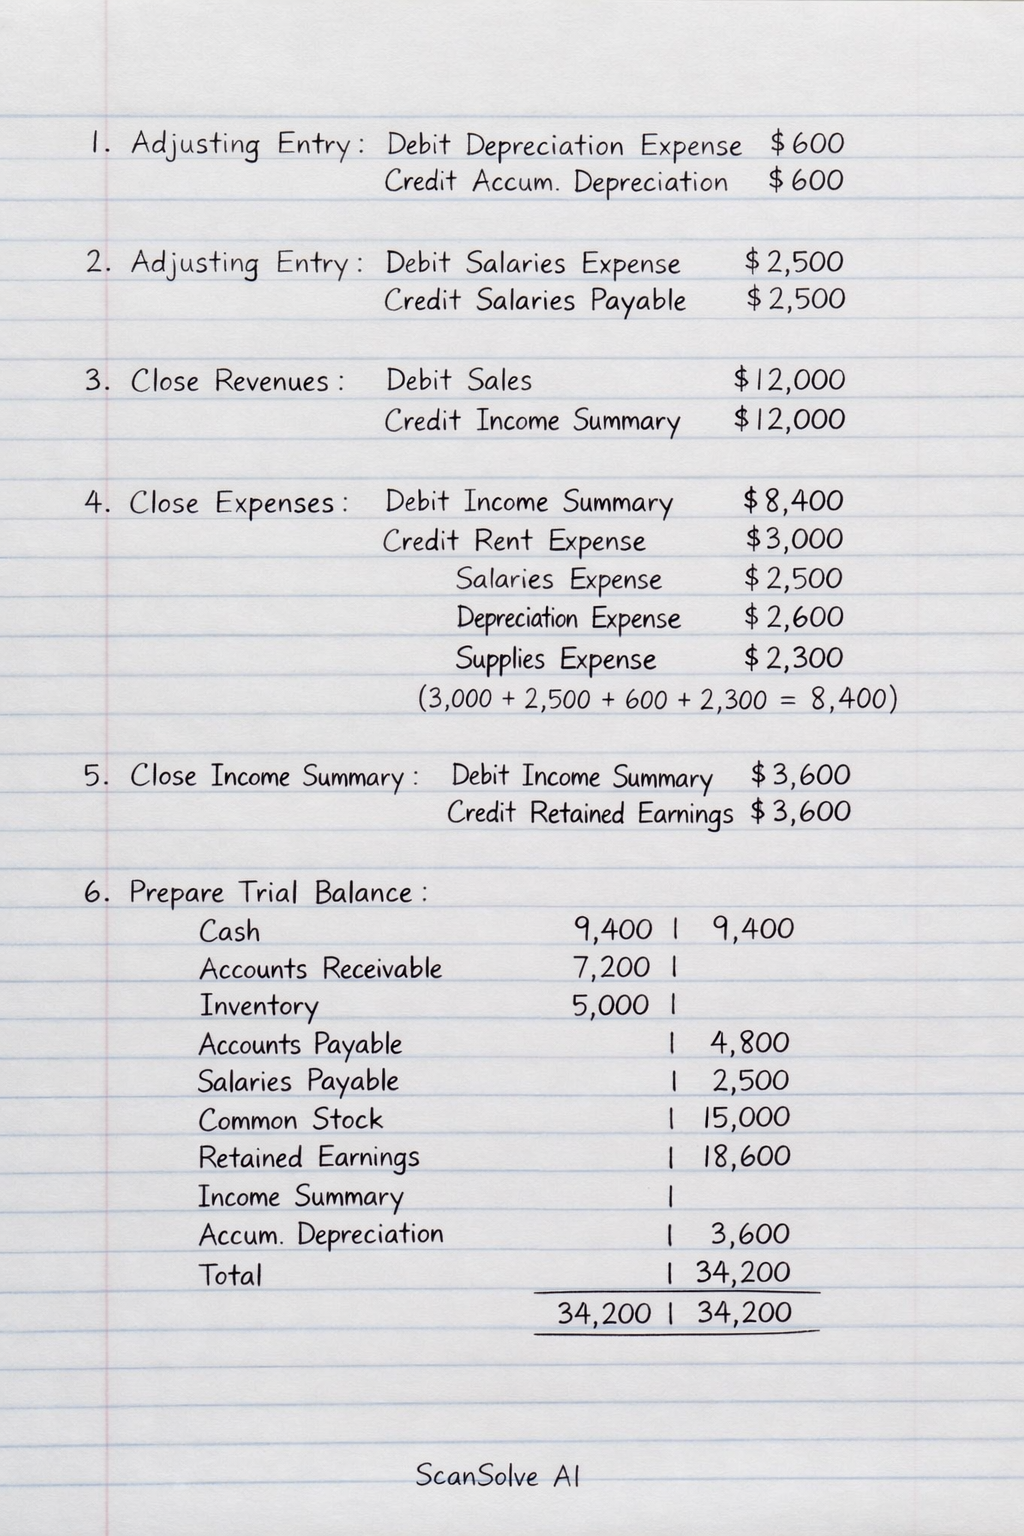 1. Adjusting Entry: Debit Depreciation Expense $600
Credit Accum. Depreciation $600
2. Adjusting Entry: Debit Salaries Expense $2,500
Credit Salaries Payable $2,500
3. Close Revenues: Debit Sales $12,000
Credit Income Summary $12,000
4. Close Expenses: Debit Income Summary $8,400
Credit Rent Expense $3,000
Salaries Expense $2,500
Depreciation Expense $2,600
Supplies Expense $2,300
(3,000 + 2,500 + 600 + 2,300 = 8,400)
5. Close Income Summary: Debit Income Summary $3,600
Credit Retained Earnings $3,600
6. Prepare Trial Balance:
Cash 9,400 | 9,400
Accounts Receivable 7,200 |
Inventory 5,000 |
Accounts Payable | 4,800
Salaries Payable | 2,500
Common Stock | 15,000
Retained Earnings | 18,600
Income Summary |
Accum. Depreciation | 3,600
Total | 34,200
34,200 | 34,200
ScanSolve AI